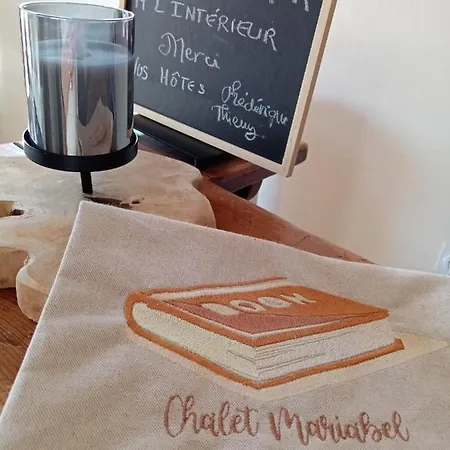 À L'INTÉRIEUR
Merci
VOS HÔTES Frédérique
Thierry
BOOK
Chalet Mariabel